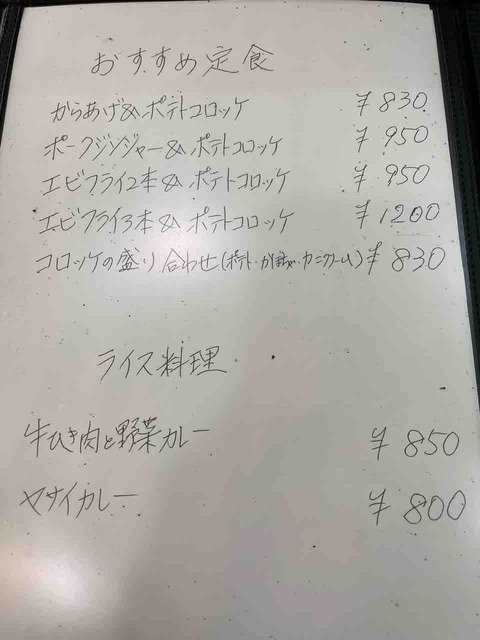 おすすめ定食
からあげ&ポテトコロッケ ¥830
ポークジンジャー&ポテトコロッケ ¥950
エビフライ2本&ポテトコロッケ ¥950
エビフライ3本&ポテトコロッケ ¥1200
コロッケの盛り合わせ(ポテト・かぼちゃ・カニクリーム) ¥830
ライス料理
牛ひき肉と野菜カレー ¥850
ヤサイカレー ¥800